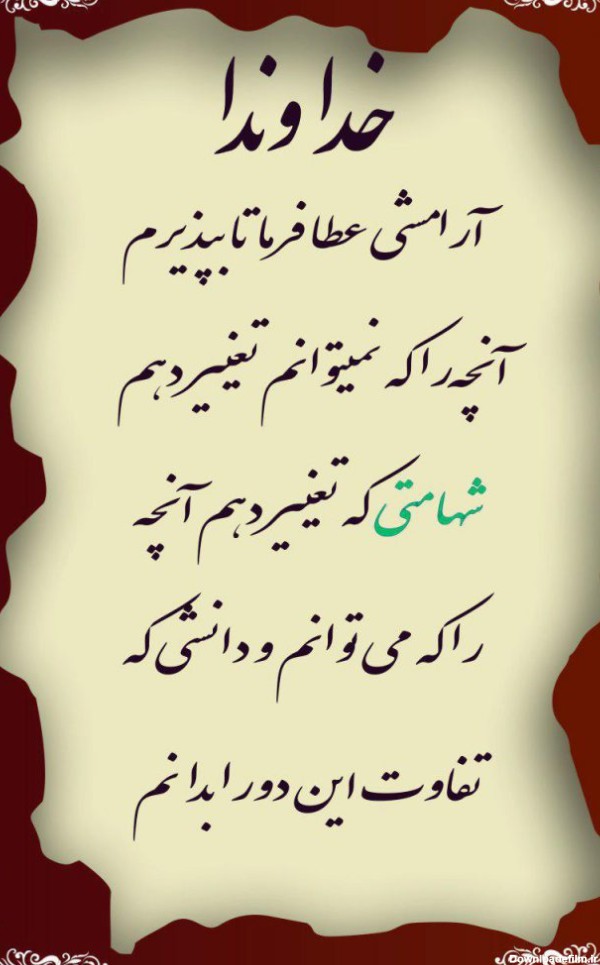 خداوندا
آرامشی عطا فرما تا بپذیرم
آنچه را که نمیتوانم تغییر دهم
شهامتی که تغییر دهم آنچه
را که می توانم و دانشی که
تفاوت این دو را بدانم
Downloadefilm.ir